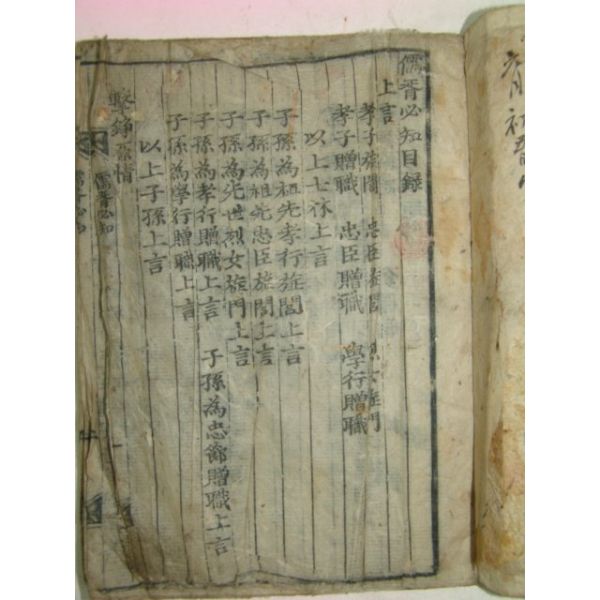 儒胥必知目録
上言
孝子旌閭 忠臣旌閭 烈女旌門
孝子贈職 忠臣贈職 學行贈職
以上士林上言
子孫為祖先孝行旌閭上言
子孫為祖先忠臣旌閭上言
子孫為先世烈女旌門上言
子孫為孝行贈職上言 子孫為忠節贈職上言
子孫為學行贈職上言
以上子孫上言
擊錚原情
儒胥必知